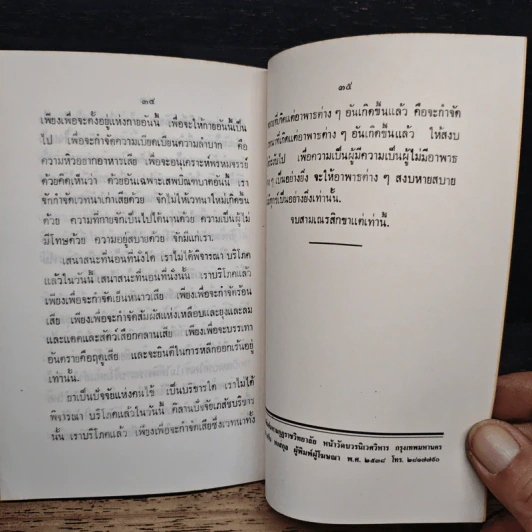 ๓๔
เพียงเพื่อจะตั้งอยู่แห่งกายอันนี้ เพื่อจะให้กายอันนี้เป็น
ไป เพื่อจะกำจัดความเบียดเบียนความลำบาก คือ
ความหิวอยากอาหารเสีย เพื่อจะอนุเคราะห์พรหมจรรย์
ด้วยคิดเห็นว่า ด้วยอันเฉพาะเสพบิณฑบาตอันนี้ เรา
จักกำจัดเวทนาเก่าเสียด้วย จักไม่ให้เวทนาใหม่เกิดขึ้น
ด้วย ความที่กายจักเป็นไปได้นานด้วย ความเป็นผู้ไม่
มีโทษด้วย ความอยู่สบายด้วย จักมีแก่เรา.
เสนาสนะที่นอนที่นั่งใด เราไม่ได้พิจารณา บริโภค
แล้วในวันนี้ เสนาสนะที่นอนที่นั่งนั้น เราบริโภคแล้ว
เพียงเพื่อจะกำจัดเย็นหนาวเสีย เพียงเพื่อจะกำจัดร้อน
เสีย เพียงเพื่อจะกำจัดสัมผัสแห่งเหลือบและยุงและลม
และแดดและสัตว์เสือกคลานเสีย เพียงเพื่อจะบรรเทา
อันตรายคือฤดูเสีย และจะยินดีในการหลีกออกเร้นอยู่
เท่านั้น.
ยาเป็นปัจจัยแห่งคนไข้ เป็นบริขารใด เราไม่ได้
พิจารณา บริโภคแล้วในวันนี้ คิลานปัจจัยเภสัชบริขาร
นั้น เราบริโภคแล้ว เพียงเพื่อจะกำจัดเสียซึ่งเวทนาทั้ง
๓๕
ที่เกิดแต่อาพาธต่าง ๆ อันเกิดขึ้นแล้ว คือจะกำจัด
ที่เกิดแต่อาพาธต่าง ๆ อันเกิดขึ้นแล้ว ให้สงบ
ไป เพื่อความเป็นผู้มีความเป็นผู้ไม่มีอาพาธ
ๆ เป็นอย่างยิ่ง จะให้อาพาธต่าง ๆ สงบหายสบาย
เป็นอย่างยิ่งเท่านั้น.
จบสามเณรสิกขาแต่เท่านี้.
หน้าวัดบวรนิเวศวิหาร กรุงเทพมหานคร
ผู้พิมพ์ผู้โฆษณา พ.ศ. ๒๕๓๔ โทร.